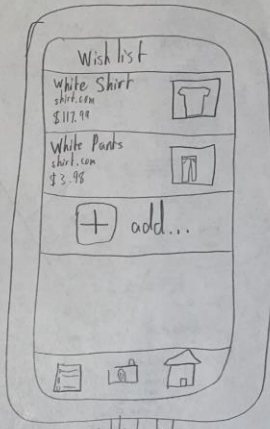 Wish list
White Shirt
shirt.com
$117.99
White Pants
shirt.com
$3.98
+ add...